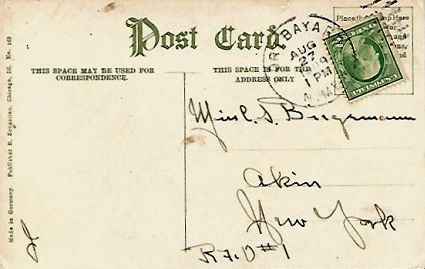 Post Card.
THIS SPACE MAY BE USED FOR
CORRESPONDENCE.
THIS SPACE IS FOR THE
ADDRESS ONLY
Place the Here
BAYA
AUG
27
1 PM
N. MEX
Miss S. Bergemann
Akin
New York
R.F.D #1
Made in Germany. Publisher B. Sebastian, Chicago, Ill. No. 169